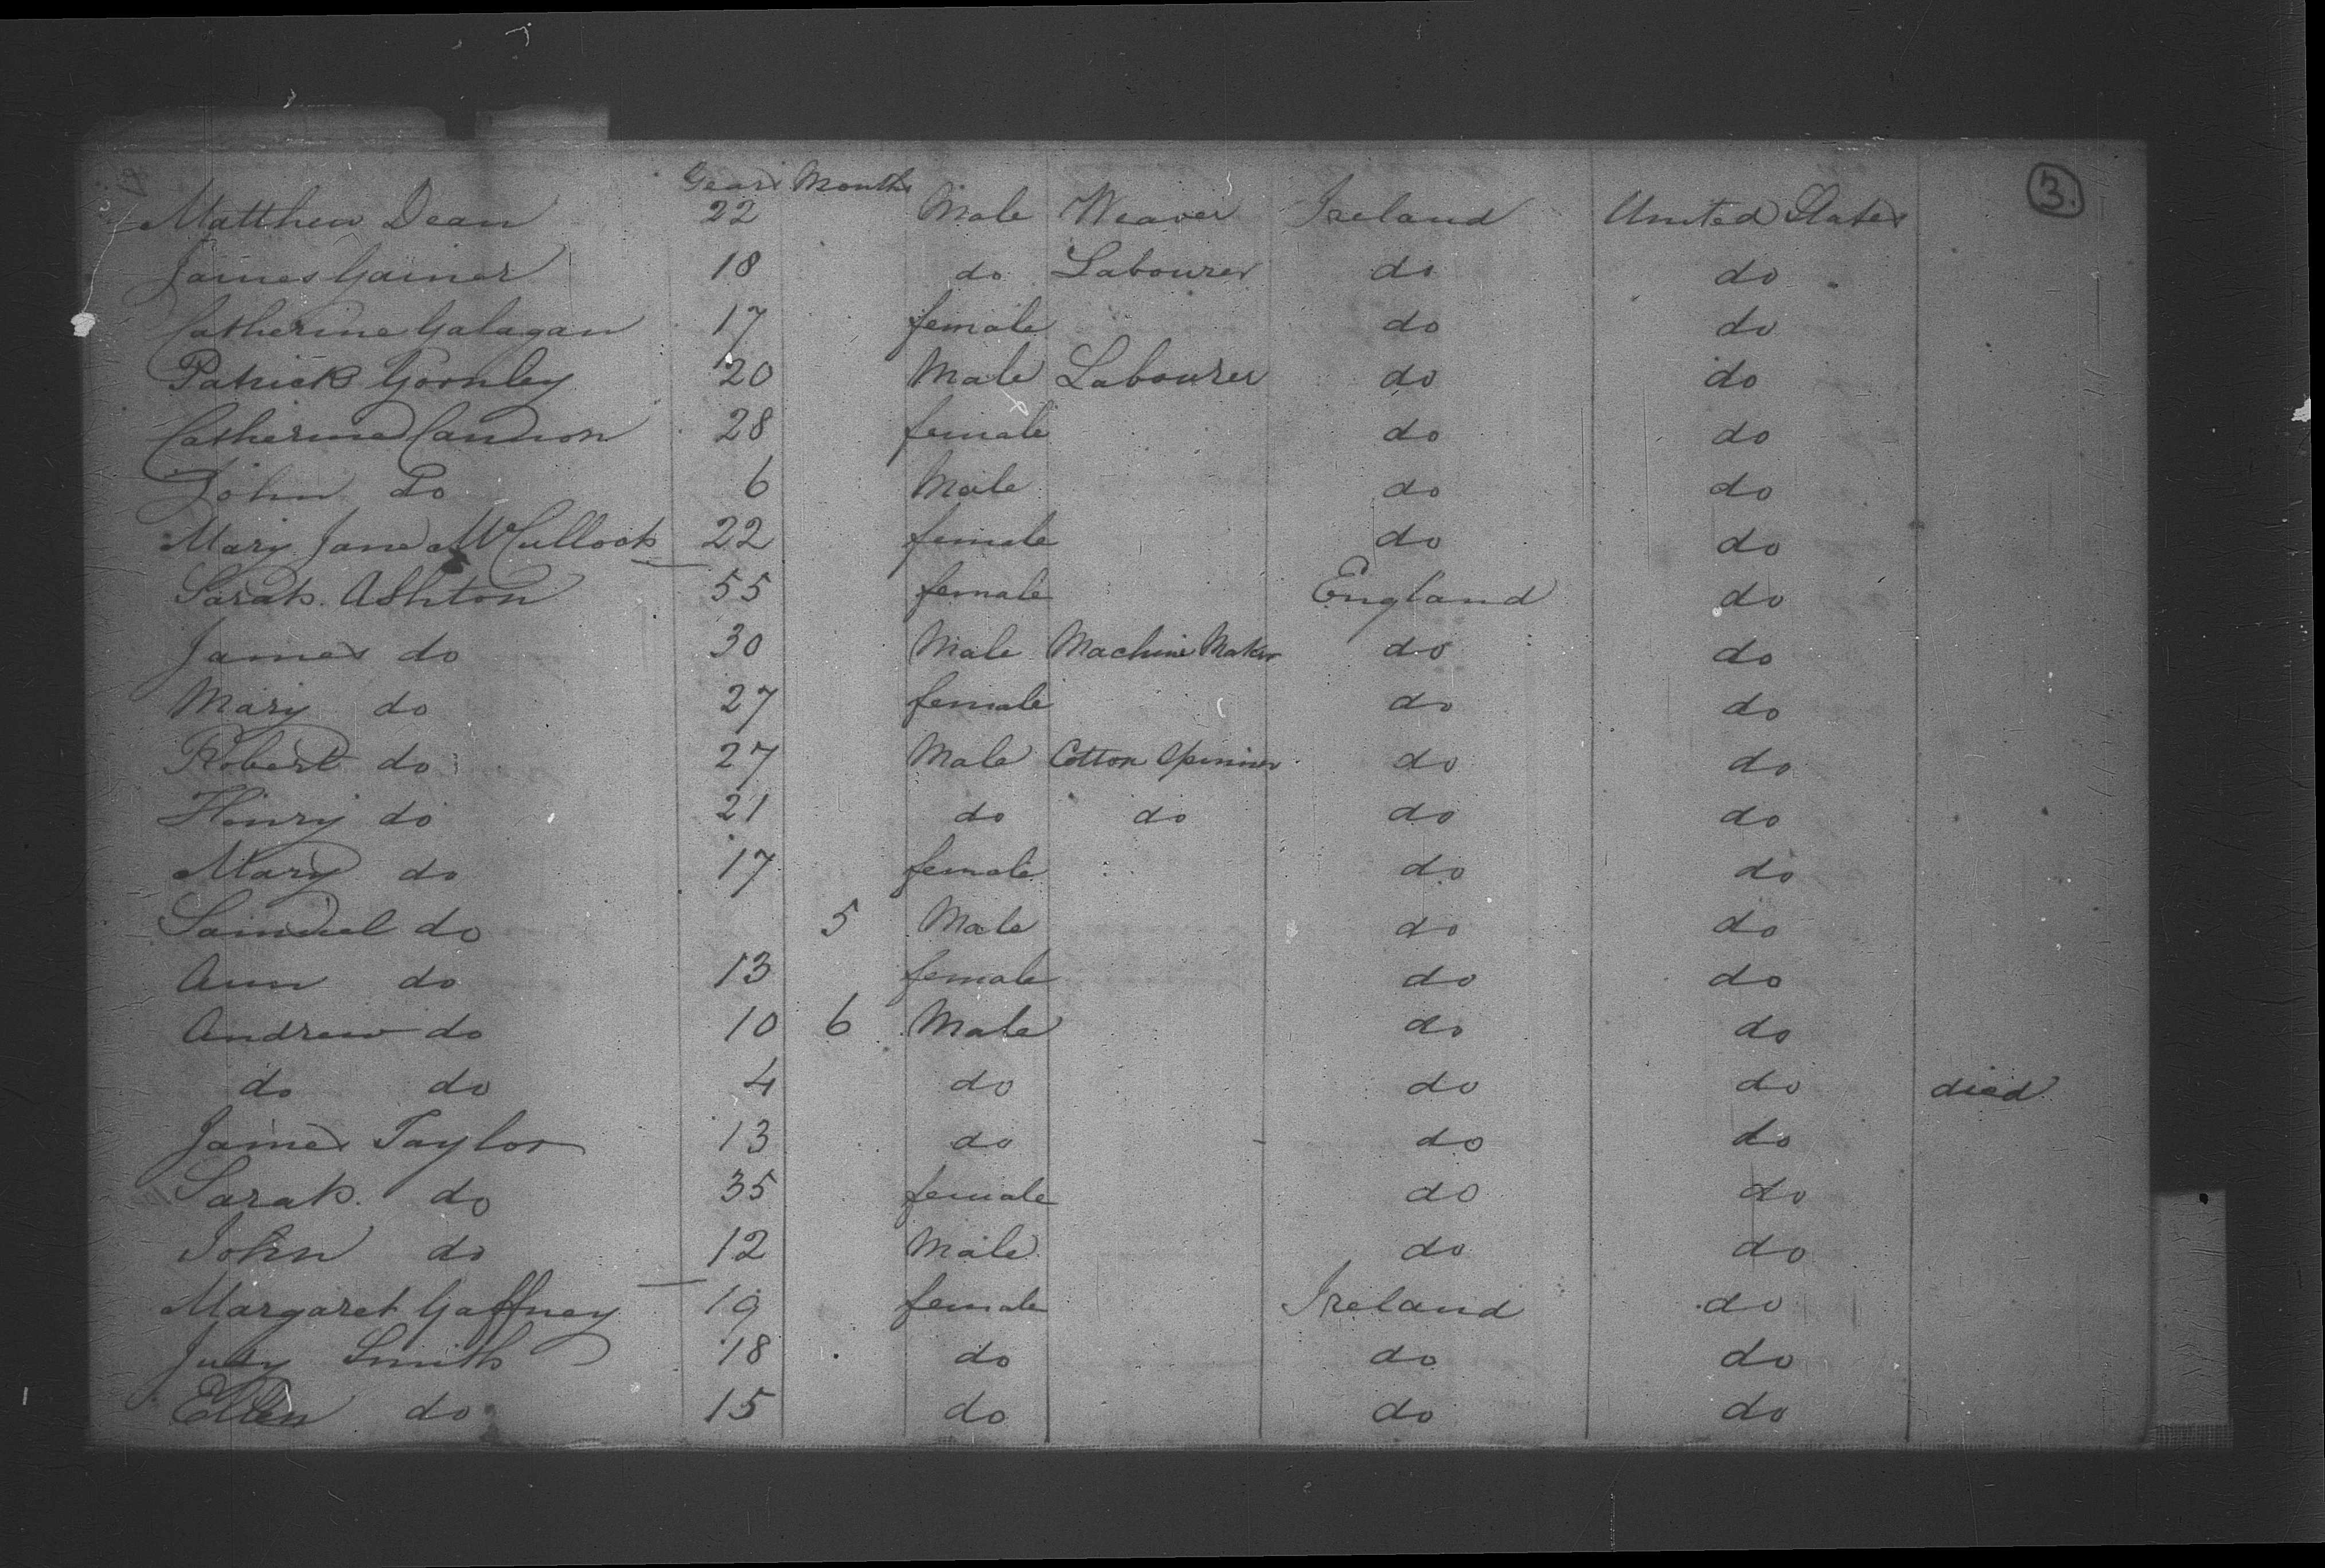 Years Months
3.
Matthew Dean 22 Male Weaver Ireland United States
James Gainer 18 do Labourer do do
Catherine Galagan 17 female do do
Patrick Gornley 20 Male Labourer do do
Catherine Cannon 28 female do do
John Do 6 Male do do
Mary Jane McCulloch 22 female do do
Sarah Ashton 55 female England do
James do 30 Male Machine Maker do do
Mary do 27 female do do
Robert do 27 Male Cotton Spinner do do
Henry do 21 do do do do
Mary do 17 female do do
Samuel do 5 Male do do
Ann do 13 female do do
Andrew do 10 6 Male do do
do do 4 do do do died
James Taylor 13 do do do
Sarah do 35 female do do
John do 12 Male do do
Margaret Gaffney 19 female Ireland do
Judy Smith 18 do do do
Ellen do 15 do do do